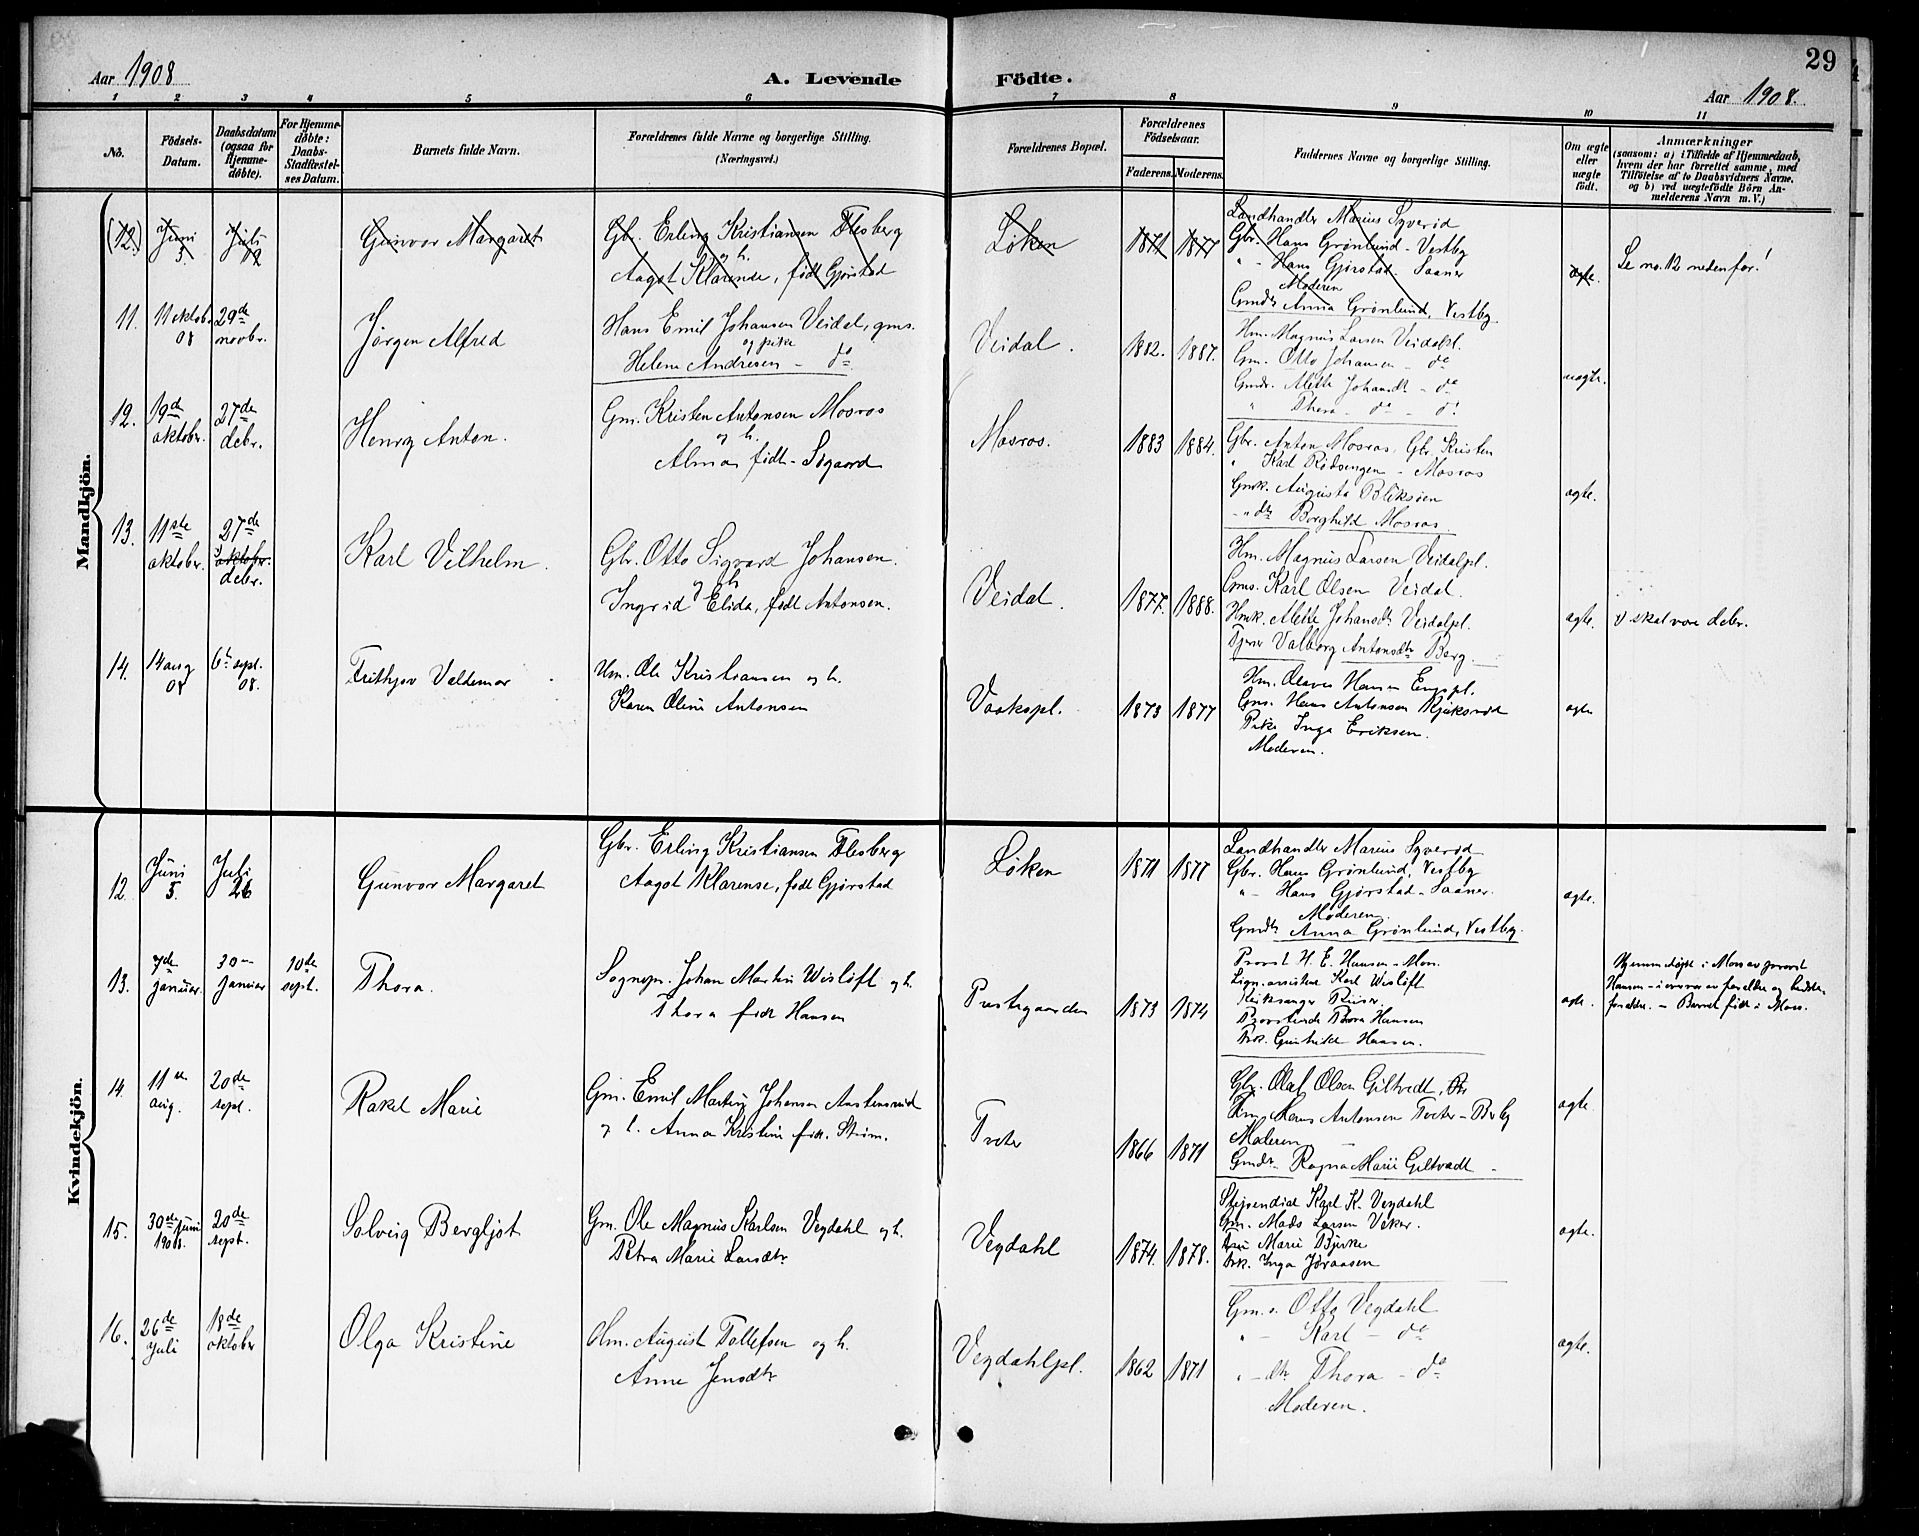 29
Aar 1908
A. Levende Fødte.
Aar 1908.
1 2 3 4 5 6 7 8 9 10 11
No.
Fødsels-
Datum.
Daabsdatum
(ogsaa for
Hjemme-
døbte).
For Hjemme-
døbte:
Daabs-
Stadfæstel-
ses Datum.
Barnets fulde Navn.
Forældrenes fulde Navne og borgerlige Stilling.
(Næringsvei.)
Forældrenes Bopæl.
Forældrenes
Fødselsaar.
Faderens. Moderens.
Faddernes Navne og borgerlige Stilling.
Om ægte
eller
uægte
født.
Anmærkninger
(saasom: a) i Tilfælde af Hjemmedaab,
hvem der har forrettet samme, med
Tilføielse af to Daabsvidners Navne,
og b) ved uægtefødte Børn An-
melderens Navn m. V.)
Mandkjön.
(12.)
Juni
5
Juli
Gunvor Margaret
Gbr. Erling Kristiansen Flesberg
og h.
Aagot Klarense, født Gjørstad
Løken
1871 1877
Landhandler Marius Syverid
Gbr. Hans Grønlund - Vestby
" - Hans Gjørstad - Saaner
Moderen
Gmdtr Anna Grønlund, Vestby.
ægte.
Se no. 12 nedenfor!
11.
11 oktob.
08
29de
novbr.
Jørgen Alfred
Hans Emil Johansen Veidal, gms.
og pike
Helene Andresen - do
Veidal.
1882. 1887.
Hm. Magnus Larsen Veidalpl.
Gm. Otto Johansen - do
Gmdr. Mette Johansdt - do
" Thora - do - do
uægte.
12.
19de
oktober.
27de
debr.
Henry Anton.
Gm. Kristen Antonsen Mosros
og h.
Alma født - Sogaard
Mosros.
1883 1884.
Gbr. Anton Mosros, Gbr. Kristen
" Karl Rødsengen - Mosros
Gmk. Augusta Bliksøen
- " dtr Borghild Mosros.
ægte.
13.
11ste
oktober.
27de
oktober.
debr.
Karl Vilhelm.
Gbr. Otto Sigvard Johansen.
og h
Ingrid Elida, født Antonsen.
Veidal.
1877. 1888.
Hm. Magnus Larsen Veidalpl.
Gms. Karl Olsen Veidal.
Hmk. Mette Johansdt. Veidalpl.
Tjener Valborg Antonsdtr Berg.
ægte.
skal være debr.
14.
14 aug
08
6te sept.
08.
Frithjov Valdemar
Hm. Ole Kristiansen og h.
Karen Oline Antonsen
Vaakspl.
1873 1877
Hm. Olaves Hansen Engspl.
Gms. Hans Antonsen
Pike Inga Eriksen.
Moderen.
ægte
Kvindekjön.
12
Juni
5.
Juli
26
Gunvor Margaret
Gbr. Erling Kristiansen Flesberg
Aagot Klarense, født Gjørstad
Løken
1871 1877
Landhandler Marius Syverid
Gbr. Hans Grønlund, Vestby
" - Hans Gjørstad - Saaner.
Moderen.
Gmdtr Anna Grønlund, Vestby.
ægte.
13.
7de
januar.
30
januar
10de
sept.
Thora.
Sognepr. Johan Martin Wisløff og h.
Thora født Hansen
Prestegaarden
1873 1874
Provst H. E. Hansen - Mos.
Lign. assistent Karl Wisløff
Kirksanger
Provstinde Thora Hansen
Frk. Gunhild Hansen.
ægte.
Hjemmedøbt i Moss av provst
Hansen - i nærvær av forældre og bedste-
forældre. - Barnet født i Moss.
14.
11te
aug.
20de
sept.
Rakel Marie
Gm. Emil Martin Johansen Austensrud
og h. Anna Kristine født. Strøm.
Tveter
1866 1871
Gbr. Olaf Olsen Giltvedt,
Hm. Hans Antonsen Tveter -
Moderen -
Gmdtr - Ragna Marie Giltvedt -
ægte
15.
30de juni
1908.
20de
sept.
Solveig Bergljot
Gm. Ole Magnus Karlsen Vegdahl og h.
Petra Marie Larsdtr
Vegdahl
1874. 1878.
Stipendiat Karl K. Vegdahl
Gm. Mads Larsen Veker.
Marie Bjerke
Frk. Inga Joraasen
ægte.
16.
26de
juli
18de
oktober
Olga Kristine
August Tollefsen og h.
Anne Jensdtr
Vegdahlpl.
1862 1871
Gm.s. Otto Vegdahl
" - Karl - do
" - dtr Thora - do
Moderen.
ægte.